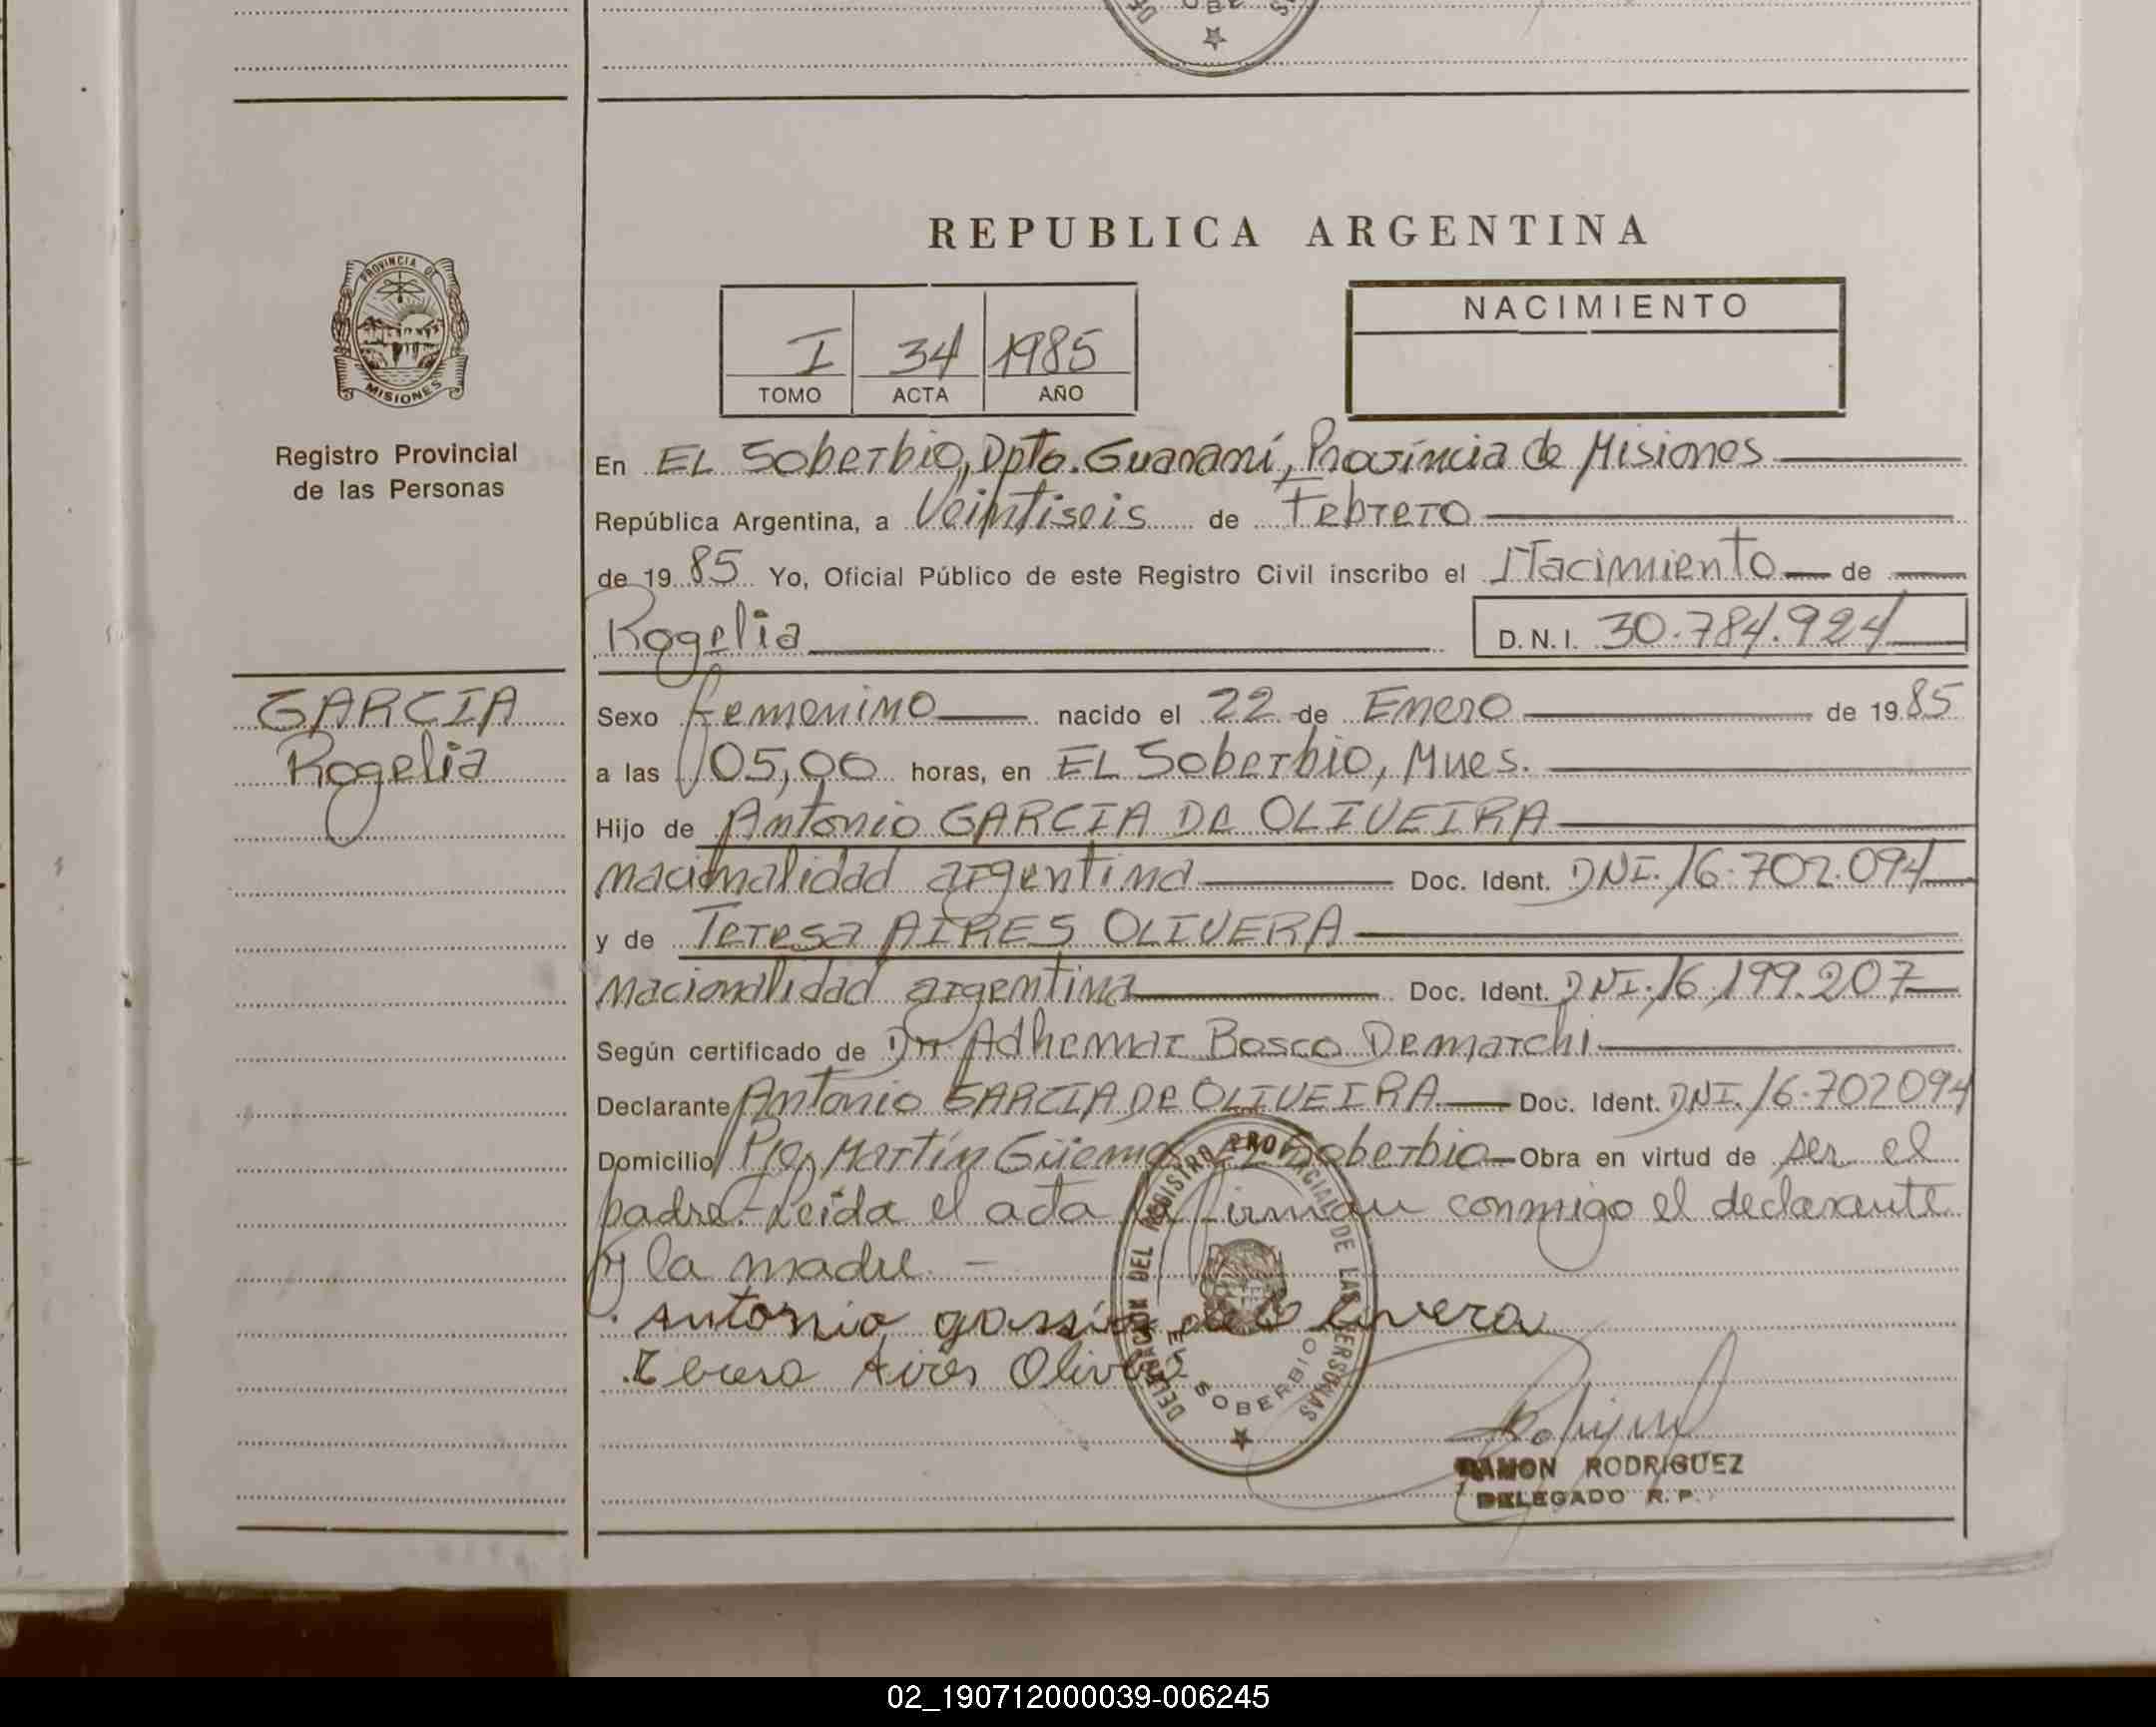 REPUBLICA ARGENTINA
PROVINCIA DE
MISIONES
Registro Provincial
de las Personas
I 34 1985
TOMO ACTA AÑO
NACIMIENTO
En EL Soberbio, Dpto. Guaraní, Provincia de Misiones
República Argentina, a Veintiseis de Febrero
de 1985 Yo, Oficial Público de este Registro Civil inscribo el Nacimiento de
Rogelia D.N.I. 30.784.924
GARCIA
Rogelia
Sexo femenino nacido el 22 de Enero de 1985
a las 05,00 horas, en EL Soberbio, Mnes.
Hijo de Antonio GARCIA De OLIVEIRA
nacionalidad argentina Doc. Ident. DNI. 16.702.094
y de Teresa AIRES OLIVERA
nacionalidad argentina Doc. Ident. DNI. 16.199.207
Según certificado de Dr Adhemar Bosco Demarchi
Declarante Antonio GARCIA De OLIVEIRA Doc. Ident. DNI. 16.702094
Domicilio Martín Güemes EL Soberbio Obra en virtud de ser el
padre.- Leida el acta la firman conmigo el declarante
y la madre. -
Antonio
Teresa Aires
DELEGACION DEL REGISTRO PROVINCIAL DE LAS PERSONAS
EL SOBERBIO
RAMON RODRIGUEZ
DELEGADO R. P.
02_190712000039-006245